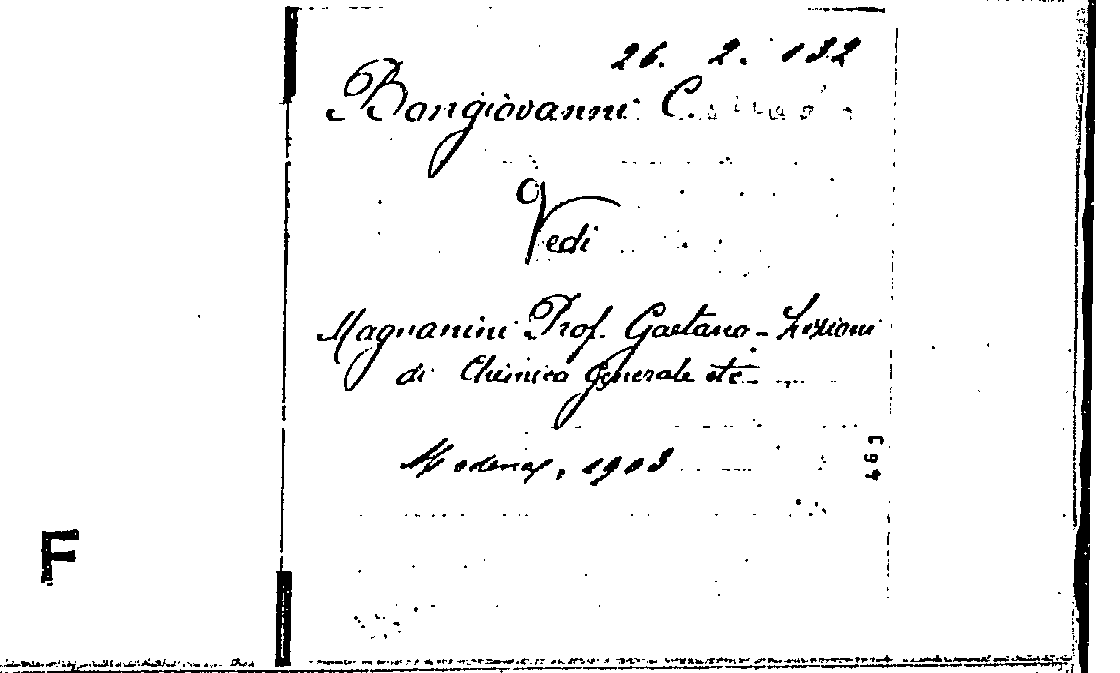 26. 2. 132
Bongiovanni C.
Vedi
Magnanini Prof. Gaetano - Lezioni
di Chimica Generale etc.
Modena, 1903
F